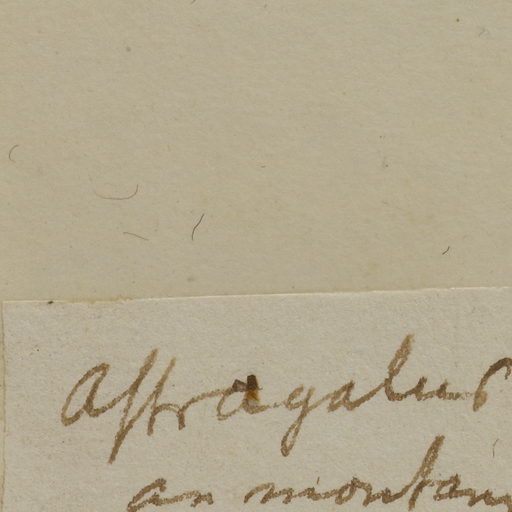 Astragalus
an montan